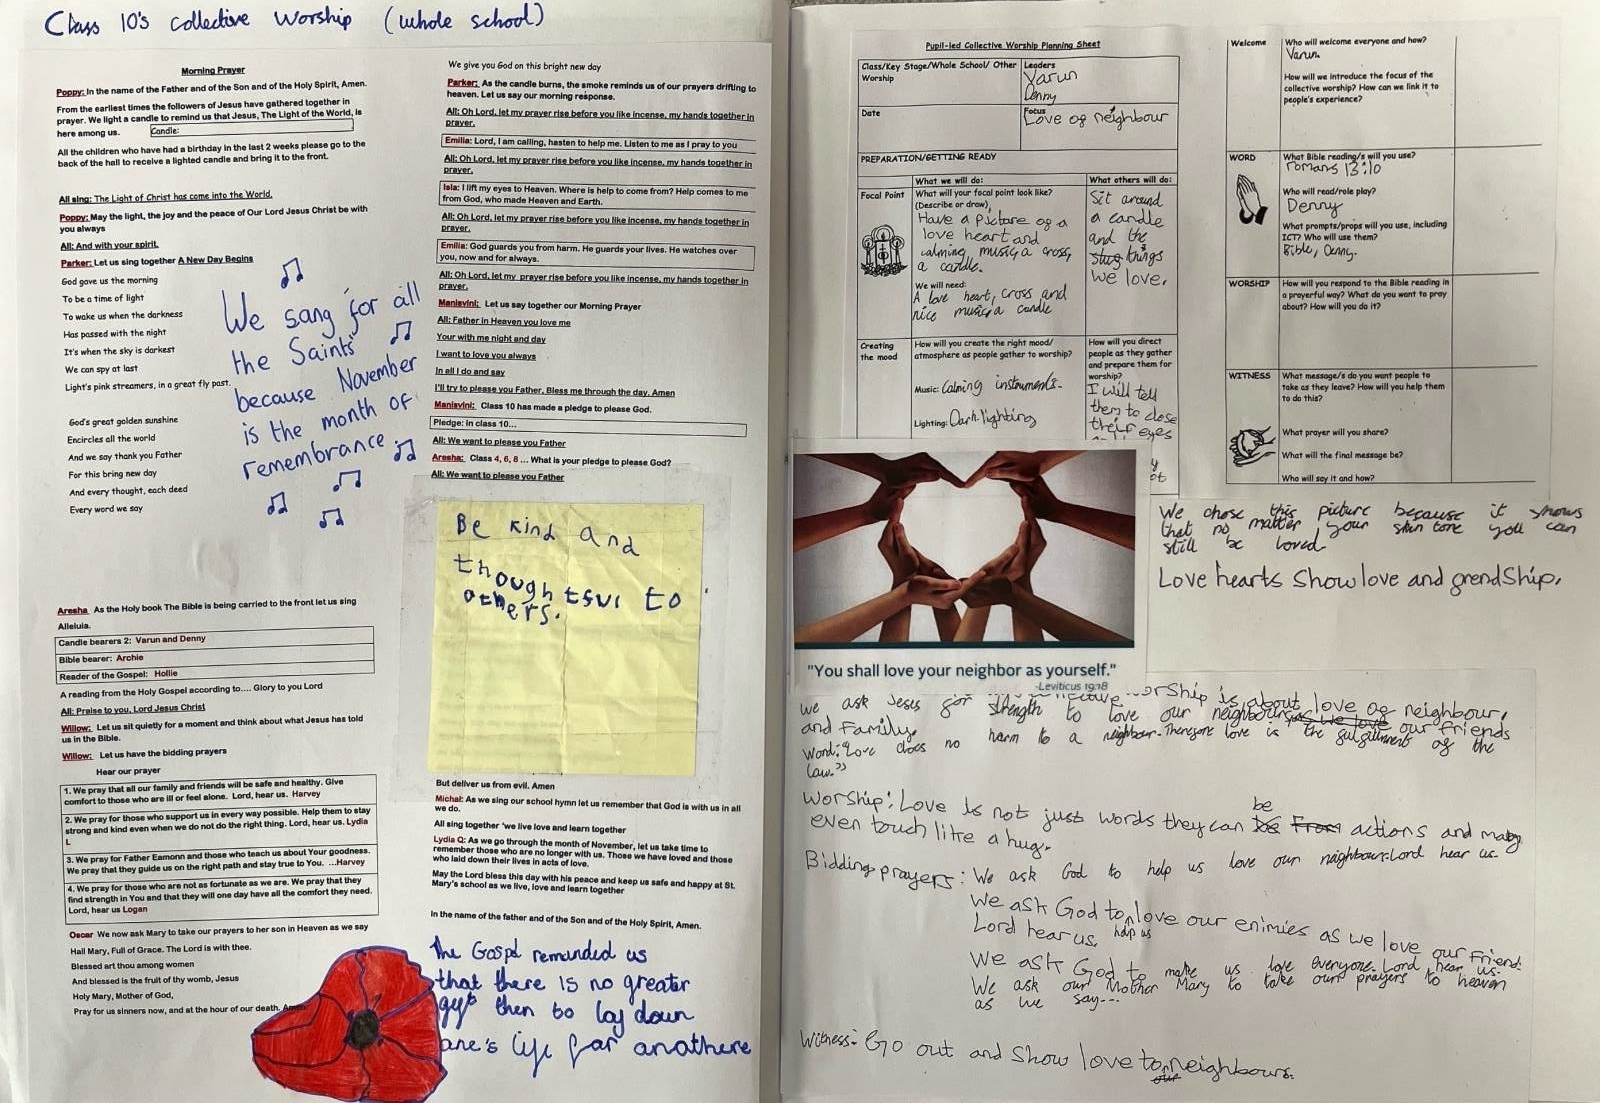 Class 10's collective worship (whole school)
Morning Prayer
Poppy: In the name of the Father and of the Son and of the Holy Spirit, Amen.
From the earliest times the followers of Jesus have gathered together in
prayer. We light a candle to remind us that Jesus, The Light of the World, is
here among us. Candle:
All the children who have had a birthday in the last 2 weeks please go to the
back of the hall to receive a lighted candle and bring it to the front.
All sing: The Light of Christ has come into the World.
Poppy: May the light, the joy and the peace of Our Lord Jesus Christ be with
you always
All: And with your spirit.
Parker: Let us sing together A New Day Begins
God gave us the morning
To be a time of light
To wake us when the darkness
Has passed with the night
It's when the sky is darkest
We can spy at last
Light's pink streamers, in a great fly past.
God's great golden sunshine
Encircles all the world
And we say thank you Father
For this bring new day
And every thought, each deed
Every word we say
We sang 'for all
the Saints'
because November
is the month of
remembrance.
Aresha As the Holy book The Bible is being carried to the front let us sing
Alleluia.
Candle bearers 2: Varun and Denny
Bible bearer: Archie
Reader of the Gospel: Hollie
A reading from the Holy Gospel according to.... Glory to you Lord
All: Praise to you, Lord Jesus Christ
Willow: Let us sit quietly for a moment and think about what Jesus has told
us in the Bible.
Willow: Let us have the bidding prayers
Hear our prayer
1. We pray that all our family and friends will be safe and healthy. Give
comfort to those who are ill or feel alone. Lord, hear us. Harvey
2. We pray for those who support us in every way possible. Help them to stay
strong and kind even when we do not do the right thing. Lord, hear us. Lydia
L
3. We pray for Father Eamonn and those who teach us about Your goodness.
We pray that they guide us on the right path and stay true to You. ...Harvey
4. We pray for those who are not as fortunate as we are. We pray that they
find strength in You and that they will one day have all the comfort they need.
Lord, hear us Logan
Oscar We now ask Mary to take our prayers to her son in Heaven as we say
Hail Mary, Full of Grace. The Lord is with thee.
Blessed art thou among women
And blessed is the fruit of thy womb, Jesus
Holy Mary, Mother of God,
Pray for us sinners now, and at the hour of our death. Amen
We give you God on this bright new day
Parker: As the candle burns, the smoke reminds us of our prayers drifting to
heaven. Let us say our morning response.
All: Oh Lord, let my prayer rise before you like incense, my hands together in
prayer.
Emilia: Lord, I am calling, hasten to help me. Listen to me as I pray to you
All: Oh Lord, let my prayer rise before you like incense, my hands together in
prayer.
Isla: I lift my eyes to Heaven. Where is help to come from? Help comes to me
from God, who made Heaven and Earth.
All: Oh Lord, let my prayer rise before you like incense, my hands together in
prayer.
Emilia: God guards you from harm. He guards your lives. He watches over
you, now and for always.
All: Oh Lord, let my prayer rise before you like incense, my hands together in
prayer.
Manisvini: Let us say together our Morning Prayer
All: Father in Heaven you love me
Your with me night and day
I want to love you always
In all I do and say
I'll try to please you Father, Bless me through the day. Amen
Manisvini: Class 10 has made a pledge to please God.
Pledge: In class 10...
All: We want to please you Father
Aresha: Class 4, 6, 8 ... What is your pledge to please God?
All: We want to please you Father
Be kind and
thoughtful to
others.
But deliver us from evil. Amen
Michal: As we sing our school hymn let us remember that God is with us in all
we do.
All sing together 'we live love and learn together
Lydia Q: As we go through the month of November, let us take time to
remember those who are no longer with us. Those we have loved and those
who laid down their lives in acts of love.
May the Lord bless this day with his peace and keep us safe and happy at St.
Mary's school as we live, love and learn together
In the name of the father and of the Son and of the Holy Spirit, Amen.
the Gospel reminded us
that there is no greater
gift then to lay down
one's life for anathere
Pupil-led Collective Worship Planning Sheet
Class/Key Stage/Whole School/ Other
Worship
Leaders
Varun
Denny
Date
Focus
Love of neighbour
PREPARATION/GETTING READY
What we will do:
What others will do:
Focal Point
What will your focal point look like?
(Describe or draw),
Have a picture of a
love heart and
calming music, a cross,
a candle.
We will need:
A love heart, cross and
nice music, a candle
Sit around
a candle
and the
things
we love.
Creating
the mood
How will you create the right mood/
atmosphere as people gather to worship?
Music: Calming instruments.
Lighting: Dark lighting
How will you direct
people as they gather
and prepare them for
worship?
I will tell
them to close
their eyes
Welcome
Who will welcome everyone and how?
Varun.
How will we introduce the focus of the
collective worship? How can we link it to
people's experience?
WORD
What Bible reading/s will you use?
romans 13:10
Who will read/role play?
Denny
What prompts/props will you use, including
ICT? Who will use them?
Bible, Denny.
WORSHIP
How will you respond to the Bible reading in
a prayerful way? What do you want to pray
about? How will you do it?
WITNESS
What message/s do you want people to
take as they leave? How will you help them
to do this?
What prayer will you share?
What will the final message be?
Who will say it and how?
"You shall love your neighbor as yourself."
-Leviticus 19:18
We chose this picture because it shows
that no matter your skin tone you can
still be loved.
Love hearts Show love and grendShip.
worship is about love of neighbour,
we ask Jesus for strength to love our neighbour as we love our friends
and Family.
word: "Love does no harm to a neighbour. Therefore love is the fulfillment of the
law."
Worship: Love is not just words they can be from actions and may
even touch like a hug.
Bidding prayers: We ask God to help us love our neighbour. Lord hear us.
We ask God to help us love our enimies as we love our friend.
Lord hear us.
We ask God to make us love everyone. Lord hear us.
We ask our Mother Mary to take our prayers to heaven
as we say---
Witness: Go out and Show love to our neighbours.